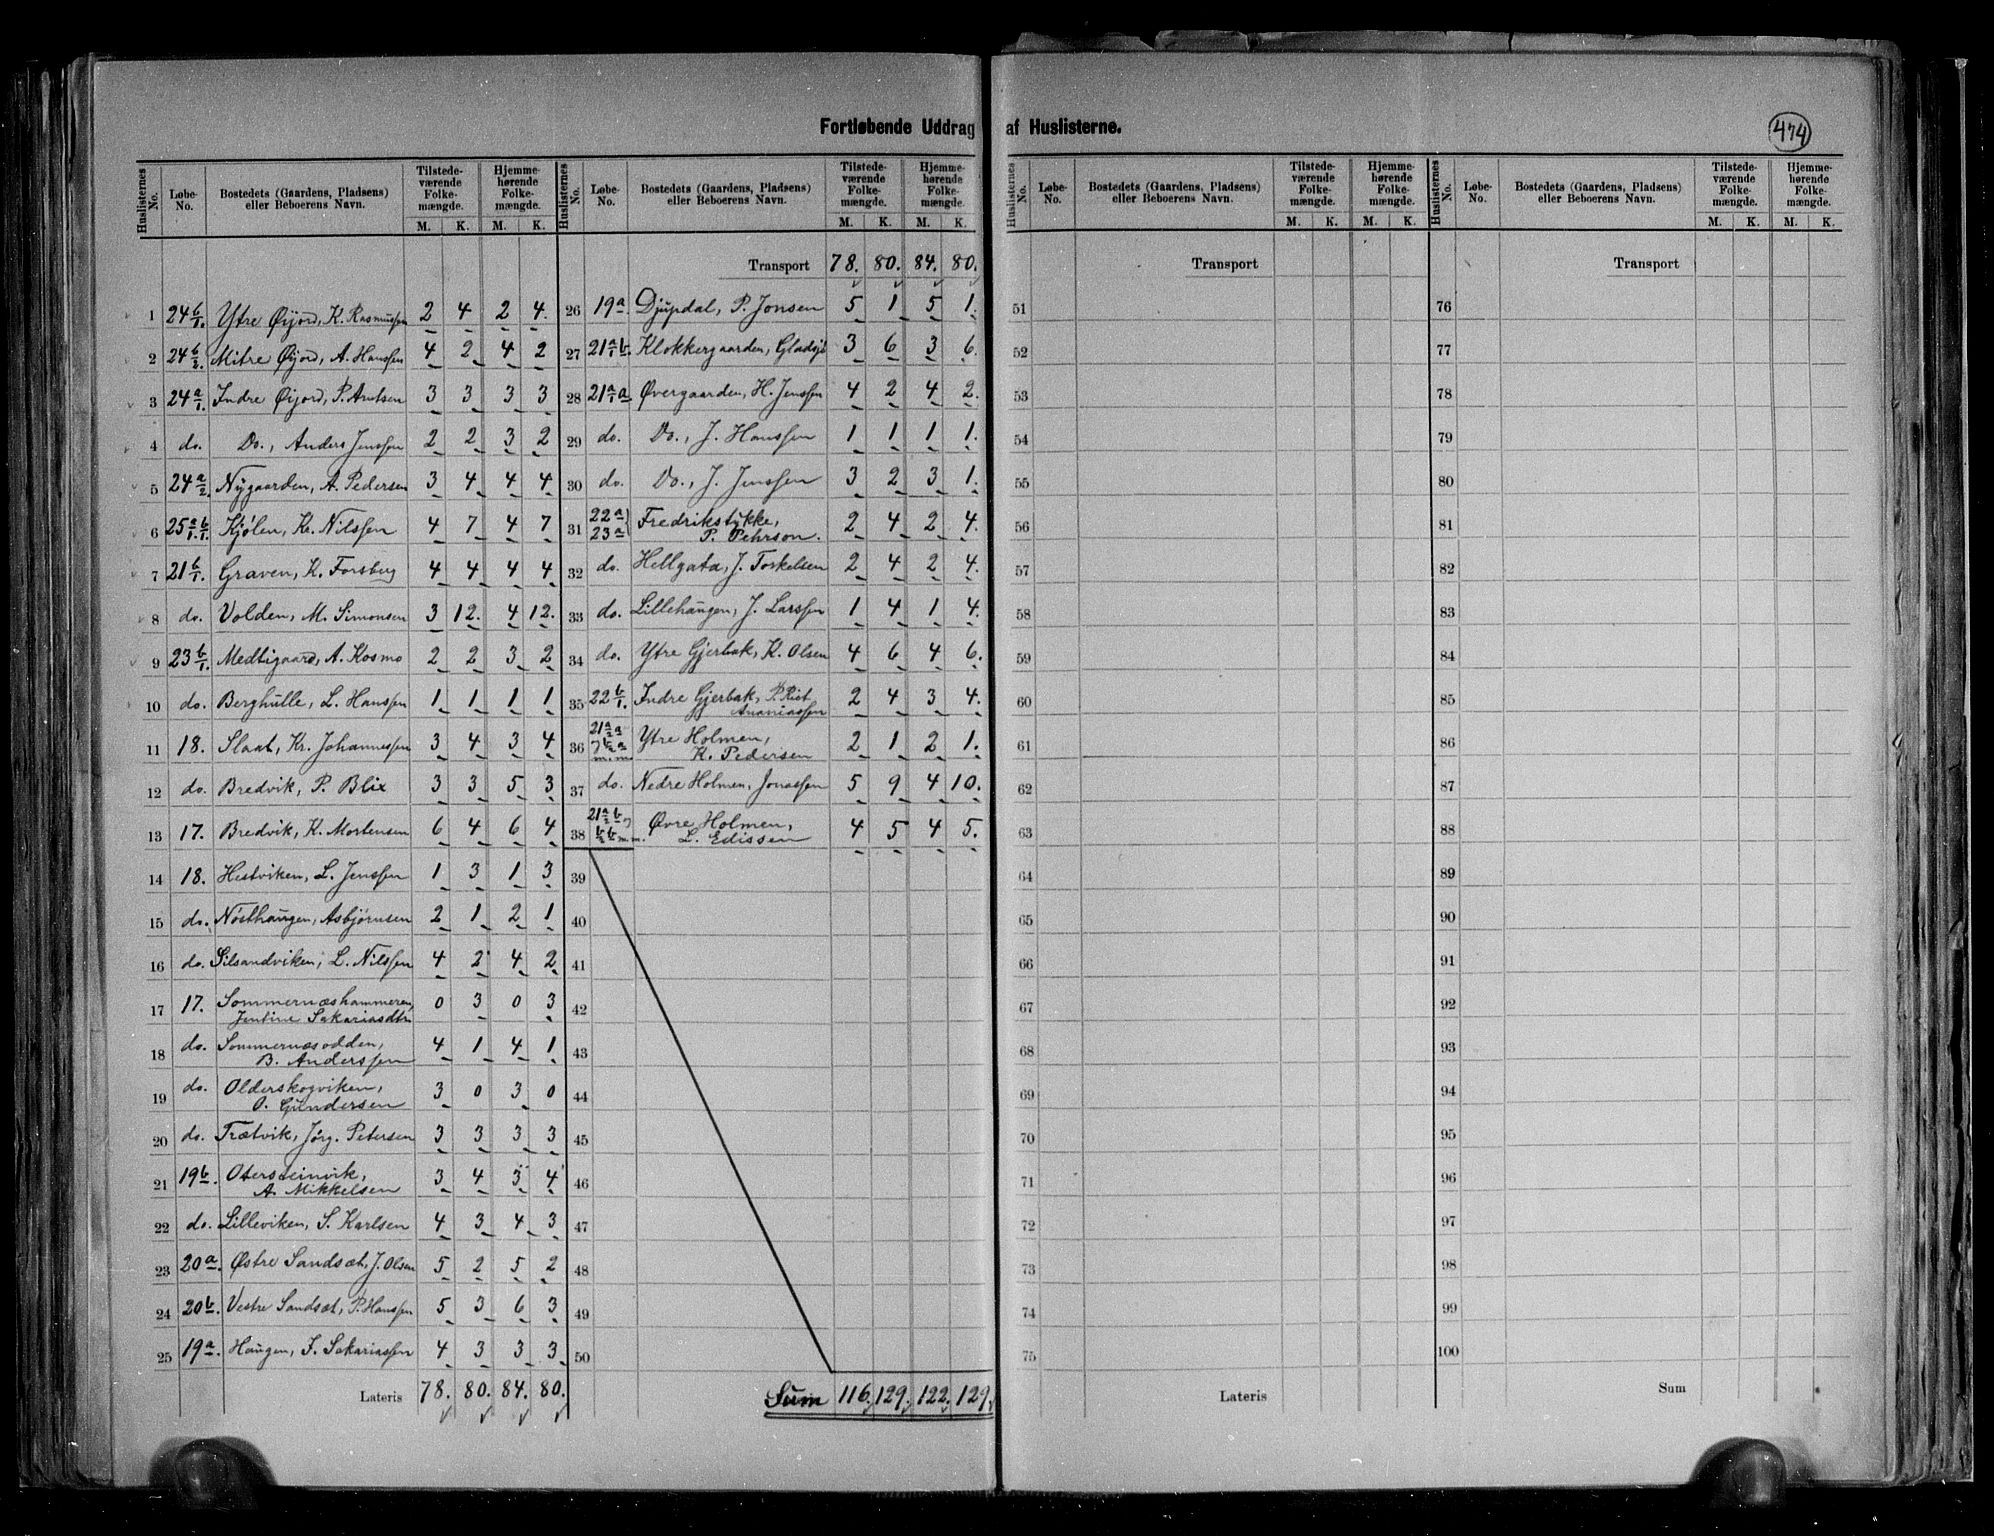 Fortløbende Uddrag af Huslisterne.
474
Huslisternes No. | Løbe-No. | Bostedets (Gaardens, Pladsens) eller Beboerens Navn. | Tilstedeværende Folkemængde. M. K. | Hjemmehørende Folkemængde. M. K.
1 24 b/1. Ytre Øijord, K. Rasmussen 2 4 2 4.
2 24 b/2. Mitre Øijord, A. Hanssen 4 2 4 2
3 24 a/1. Indre Øijord, P. Arntsen 3 3 3 3
4 do. Do., Anders Jenssen 2 2 3 2
5 24 a/2. Nygaarden, A. Pedersen 3 4 4 4
6 25 a/1. b/1. Kjølen, Kr. Nilssen 4 7 4 7
7 21 b/1. Graven, K. Forsberg 4 4 4 4
8 do. Volden, M. Simonsen 3 12. 4 12.
9 23 b/1. Medtigaard, A. Kosmo 2 2 3 2
10 do. Berghulle, L. Hanssen 1 1 1 1
11 18. Slaat, Kr. Johannessen 3 4 3 4
12 do. Bredvik, P. Blix 3 3 5 3
13 17. Bredvik, K. Mortensen 6 4 6 4
14 18. Hestviken, L. Jenssen 1 3 1 3
15 do. Nøsthaugen, Asbjørnsen 2 1 2 1
16 do. Silsandviken, L. Nilssen 4 2 4 2
17 17. Sommernæshammeren, 0 3 0 3
Jentine Sakariasdtr
18 do. Sommernæsodden, 4 1 4 1
B. Anderssen
19 do. Olderskogviken, 3 0 3 0
O. Gundersen
20 do. Trætvik, Jørg. Petersen 3 3 3 3
21 19 b. Otersteinvik, 3 4 3 4
A. Mikkelsen
22 do. Lilleviken, S. Karlsen 4 3 4 3
23 20 a. Østre Sandsæt, J. Olsen 5 2 5 2
24 20 b. Vestre Sandsæt, P. Hanssen 5 3 6 3
25 19 a. Haugen, J. Sakariassen 4 3 3 3
Lateris 78. 80. 84. 80.
Huslisternes No. | Løbe-No. | Bostedets (Gaardens, Pladsens) eller Beboerens Navn. | Tilstedeværende Folkemængde. M. K. | Hjemmehørende Folkemængde. M. K.
Transport 78. 80. 84. 80.
26 19 a Djupdal, P. Jonsen 5 1 5 1.
27 21 a/1 b. Klokkergaarden, Gladsjø 3 6 3 6.
28 21 a/1 a Øvergaarden, H. Jenssen 4 2 4 2.
29 do. Do., J. Hanssen 1 1 1 1.
30 do. Do., J. Jenssen 3 2 3 1.
31 22 a 23 a Fredrikstykke, 2 4 2 4.
P. Pehrson.
32 do. Hellgata, J. Torkelsen 2 4 2 4.
33 do. Lillehaugen, J. Larssen 1 4 1 4.
34 do. Ytre Gjerbak, K. Olsen 4 6 4 6.
35 22 b/1. Indre Gjerbak, P. Rist 2 4 3 4.
Ananiassen
36 21 a/2 a b/2 a m.m. Ytre Holmen, 2 1 2 1.
K. Pedersen
37 do. Nedre Holmen, Jonassen 5 9 4 10.
38 21 a/2 b b/2 b m.m. Øvre Holmen, 4 5 4 5.
L. Edissen
39
40
41
42
43
44
45
46
47
48
49
50
Sum 116. 129. 122. 129.
Huslisternes No. | Løbe-No. | Bostedets (Gaardens, Pladsens) eller Beboerens Navn. | Tilstedeværende Folkemængde. M. K. | Hjemmehørende Folkemængde. M. K.
Transport
51
52
53
54
55
56
57
58
59
60
61
62
63
64
65
66
67
68
69
70
71
72
73
74
75
Lateris
Huslisternes No. | Løbe-No. | Bostedets (Gaardens, Pladsens) eller Beboerens Navn. | Tilstedeværende Folkemængde. M. K. | Hjemmehørende Folkemængde. M. K.
Transport
76
77
78
79
80
81
82
83
84
85
86
87
88
89
90
91
92
93
94
95
96
97
98
99
100
Sum